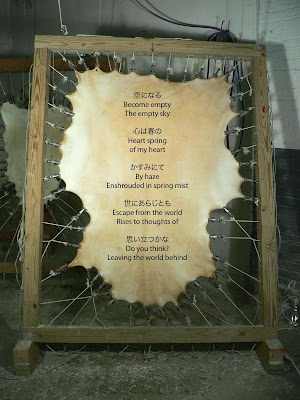 空になる
Become empty
The empty sky
心は春の
Heart spring
of my heart
かすみにて
By haze
Enshrouded in spring mist
世にあらじとも
Escape from the world
Rises to thoughts of
思い立つかな
Do you think?
Leaving the world behind